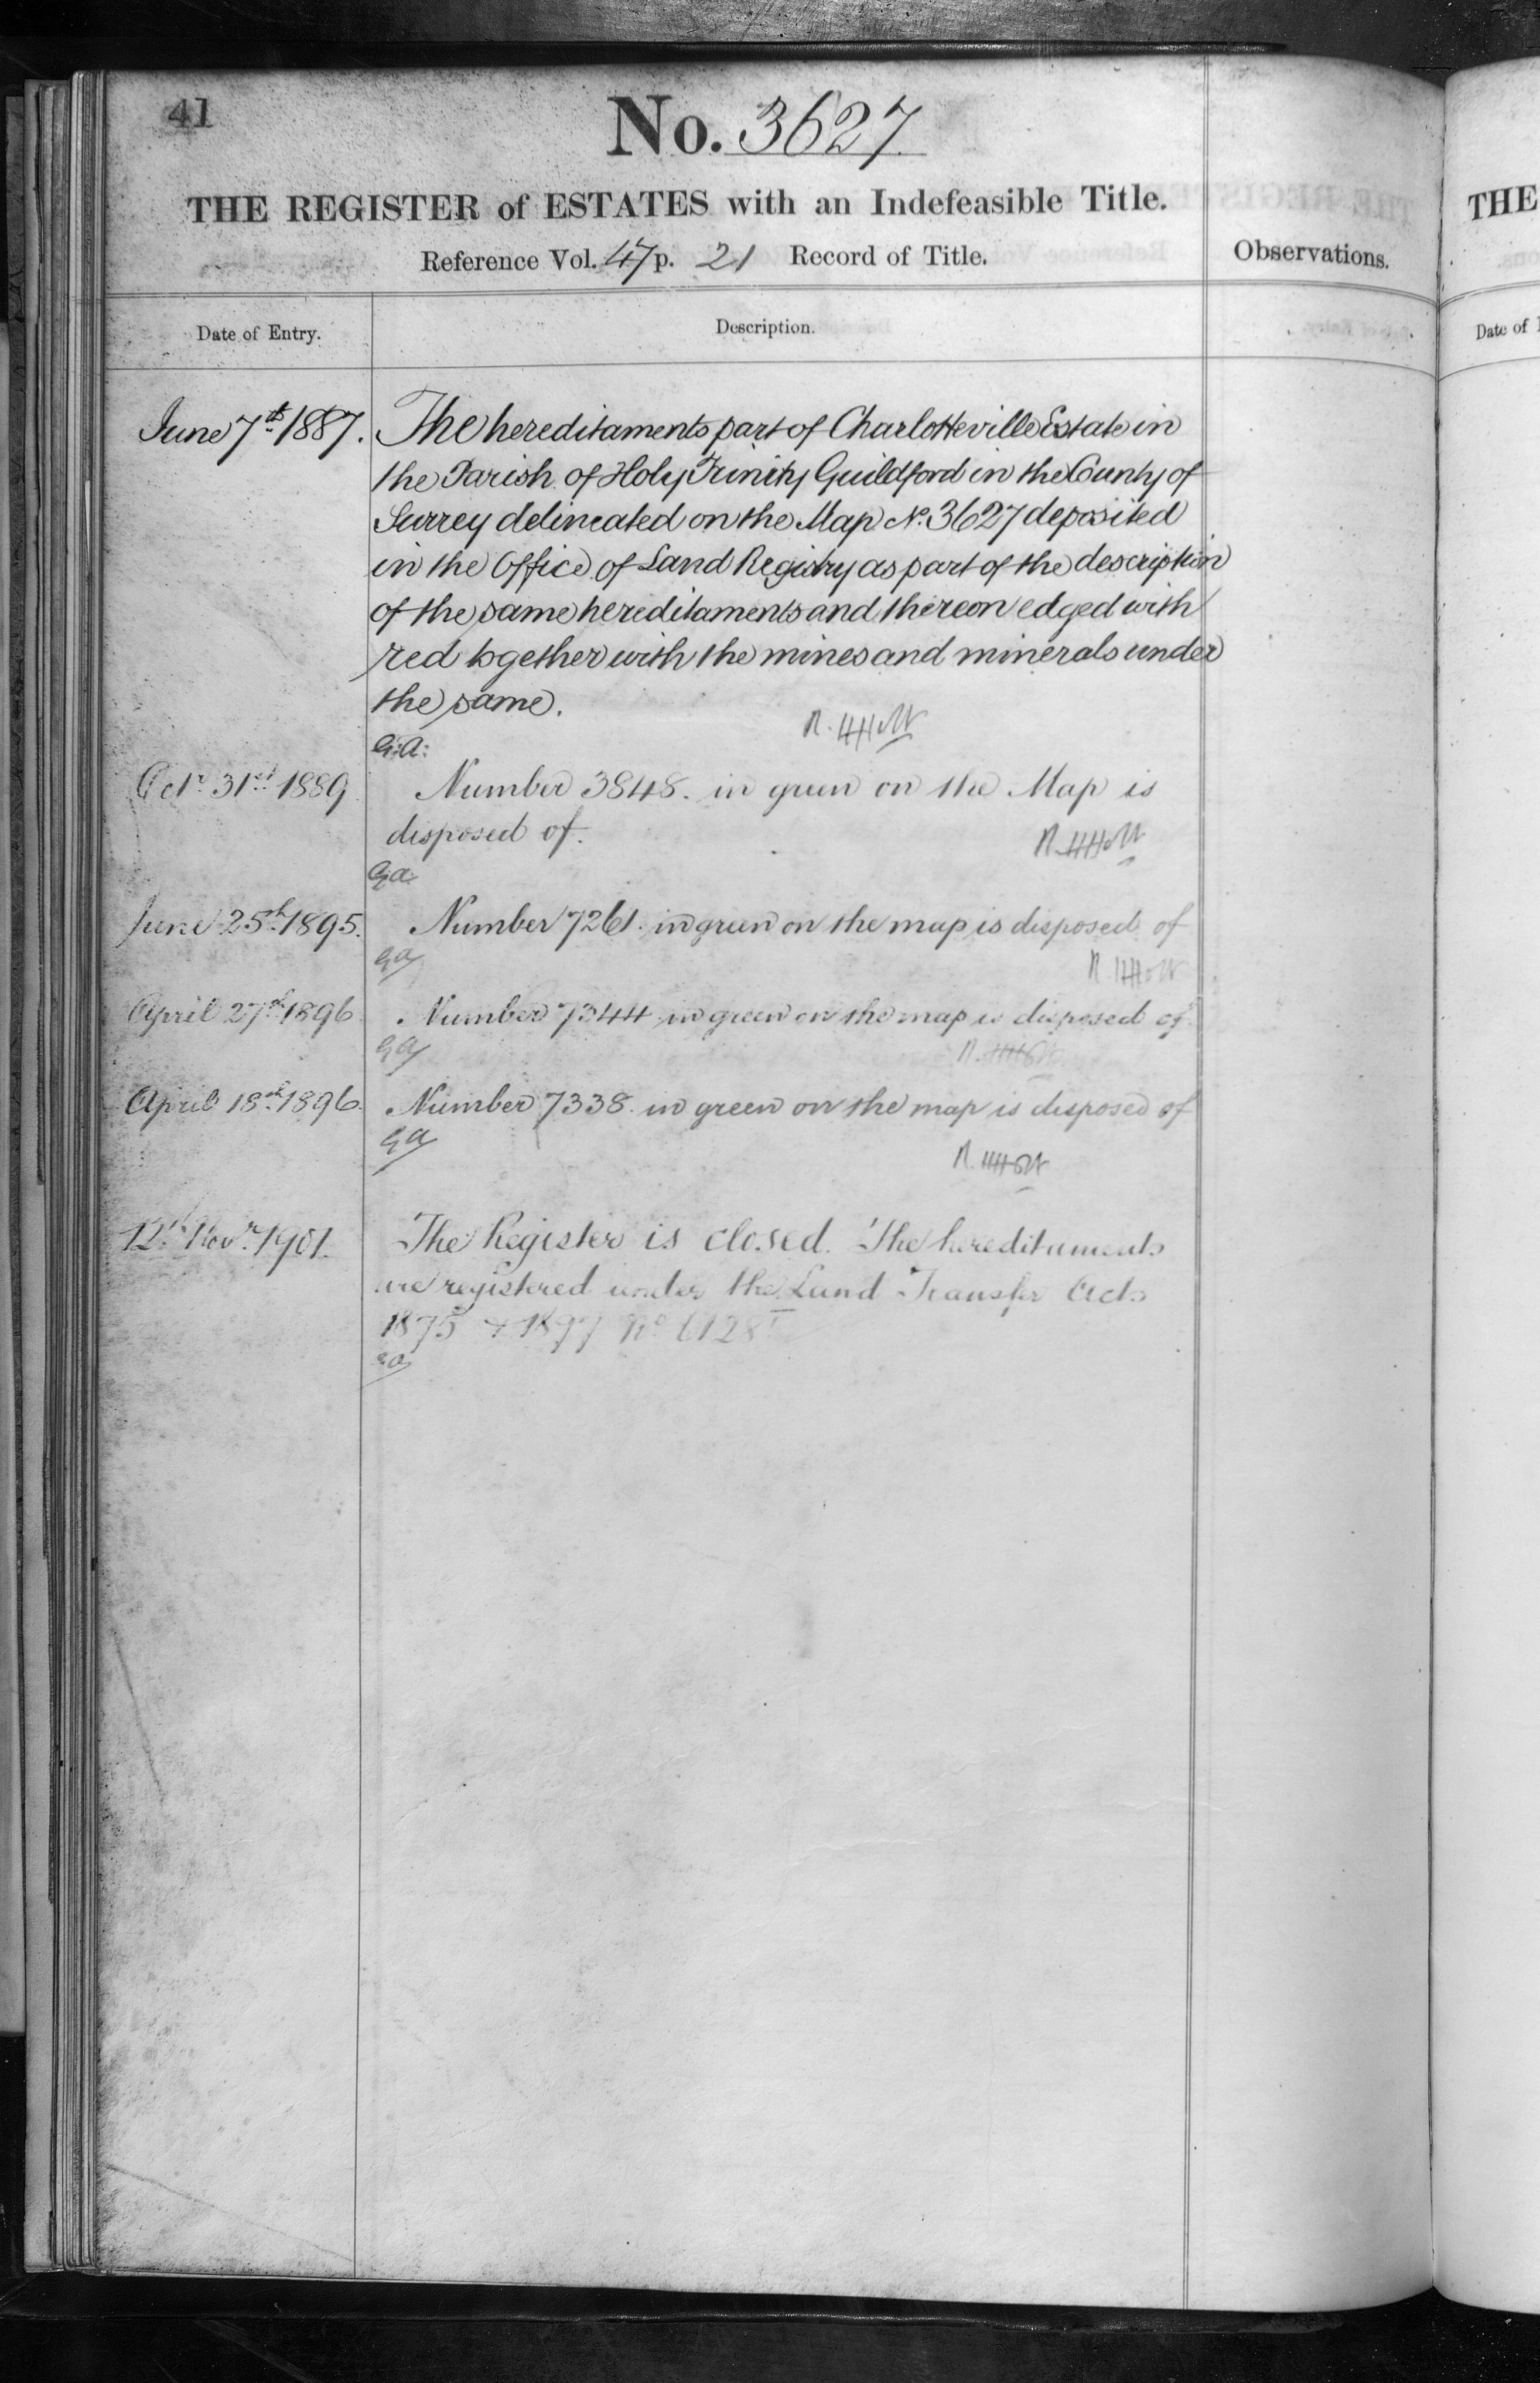 41
No. 3627
THE REGISTER of ESTATES with an Indefeasible Title.
Reference Vol. 47 p. 21 Record of Title.
Observations.
Date of Entry.
Description.
June 7th 1887. The hereditaments part of Charlotteville Estate in
the Parish of Holy Trinity Guildford in the County of
Surrey delineated on the Map No. 3627 deposited
in the Office of Land Registry as part of the description
of the same hereditaments and thereon edged with
red together with the mines and minerals under
the same.
G:A:
Octr. 31st 1889 Number 3848. in green on the Map is
disposed of.
Ga.
June 25th 1895. Number 7261. in green on the map is disposed of
Ga
April 27th 1896 Number 7344 in green on the map is disposed of
Ga
April 18th 1896. Number 7338. in green on the map is disposed of
Ga
12th Novr. 1901. The Register is closed. The hereditaments
are registered under the Land Transfer Acts
1875 & 1897 No
Ga
THE
Date of